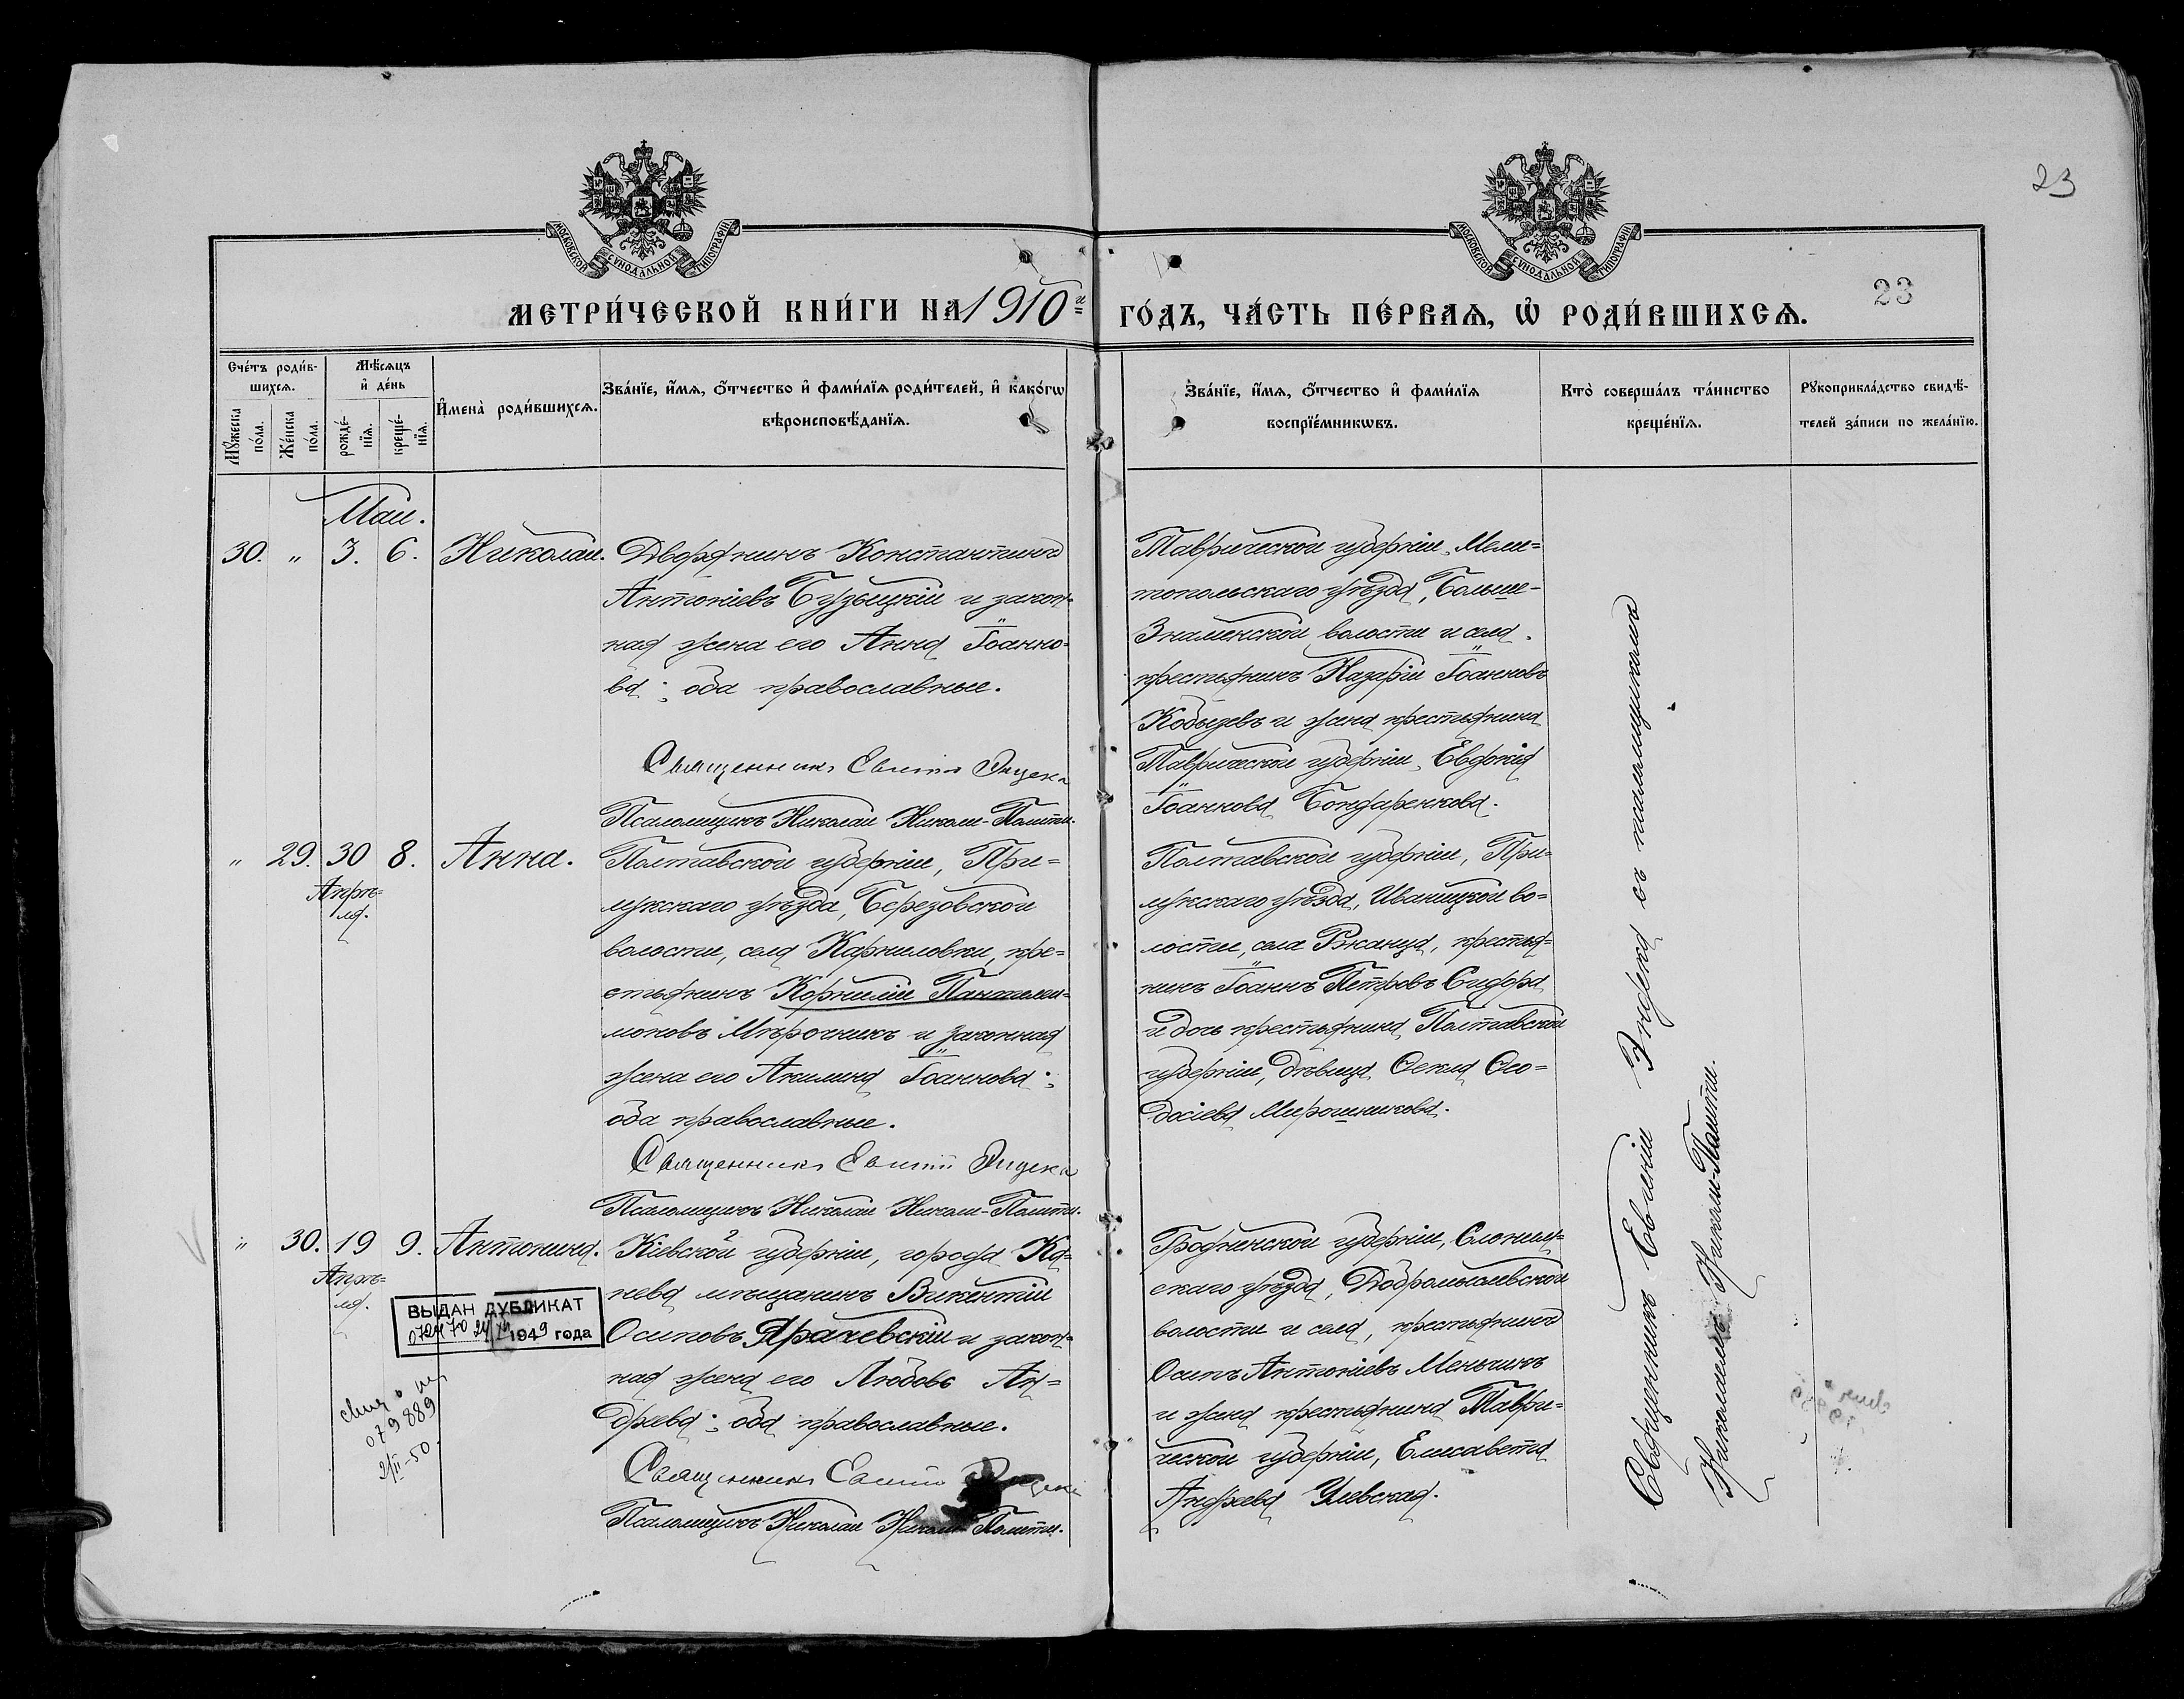 23
МОСКОВСКОЙ СѴНОДАЛЬНОЙ ТИПОГРАФІИ
МОСКОВСКОЙ СѴНОДАЛЬНОЙ ТИПОГРАФІИ
23
МЕТРИ́ЧЕСКОЙ КНИ́ГИ НА 1910й ГО́ДЪ, ЧА́СТЬ ПЕ́РВАѦ, Ѡ҆ РОДИ́ВШИХСѦ.
Сче́тъ роди́в-
шихсѧ.
Мꙋ́жеска по́ла.
Же́нска по́ла.
Мѣ́сѧцъ
и҆ де́нь
рожде́-
нїѧ.
креще́-
нїѧ.
И҆мена̀ роди́вшихсѧ.
Зва́нїе, и҆́мѧ, ѻ҆́тчество и҆ фами́лїѧ роди́телей, и҆ како́гѡ
вѣроисповѣ́данїѧ.
Зва́нїе, и҆́мѧ, ѻ҆́тчество и҆ фами́лїѧ
воспрїе́мникѡвъ.
Кто̀ соверша́лъ та́инство
креще́нїѧ.
Рꙋкоприкла́дство свидѣ́-
телей за́писи по жела́нїю.
Май.
30. " 3. 6. Николай.
Дворянинъ Константинъ
Антоніевъ Бузыцкій и закон-
ная жена его Анна Іоанно-
ва; оба православные.
Священникъ Евгеній Эндека
Псаломщикъ Николай Николи-Помити.
Таврической губерніи, Мели-
топольскаго уѣзда, Больше-
Знаменской волости и села,
крестьянинъ Назарій Іоанновъ
Кобызевъ и жена крестьянина
Таврической губерніи, Евфимія
Іоаннова Бондаренкова.
" 29. 30 8. Анна.
Апрѣ-
ля.
Полтавской губерніи, При-
лукскаго уѣзда, Березовской
волости, села Карниловки, кре-
стьянинъ Корнилій Пантелеи-
моновъ Мѣрочникъ и законная
жена его Акилина Іоаннова;
оба православные.
Священникъ Евгеній Эндека
Псаломщикъ Николай Николи-Помити.
Полтавской губерніи, При-
лукскаго уѣзда, Иваницкой во-
лости, села Ржавца, крестья-
нинъ Іоаннъ Петровъ Сидора
и дочь крестьянина Полтавской
губерніи, дѣвица Ѳекла Ѳео-
досіева Мирошникова.
" 30. 19 9. Антонина.
Апрѣ-
ля.
Кіевской губерніи, города Ка-
нева мѣщанинъ Викентій
Осиповъ Ярачевскій и закон-
ная жена его Любовь Ан-
дреева; оба православные.
Священникъ Евгеній
Псаломщикъ Николай Николи-Помити.
Гродненской губерніи, Слоним-
скаго уѣзда, Добромысльской
волости и села, крестьянинъ
Осипъ Антоніевъ Меньчикъ
и жена крестьянина Таври-
ческой губерніи, Елисавета
Андреева Улевская.
ВЫДАН ДУБЛИКАТ
072470 24/XI 1949 года
079889
2/II-50.
Священникъ Евгеній Эндека съ псаломщикомъ
Николаемъ Николи-Помити.